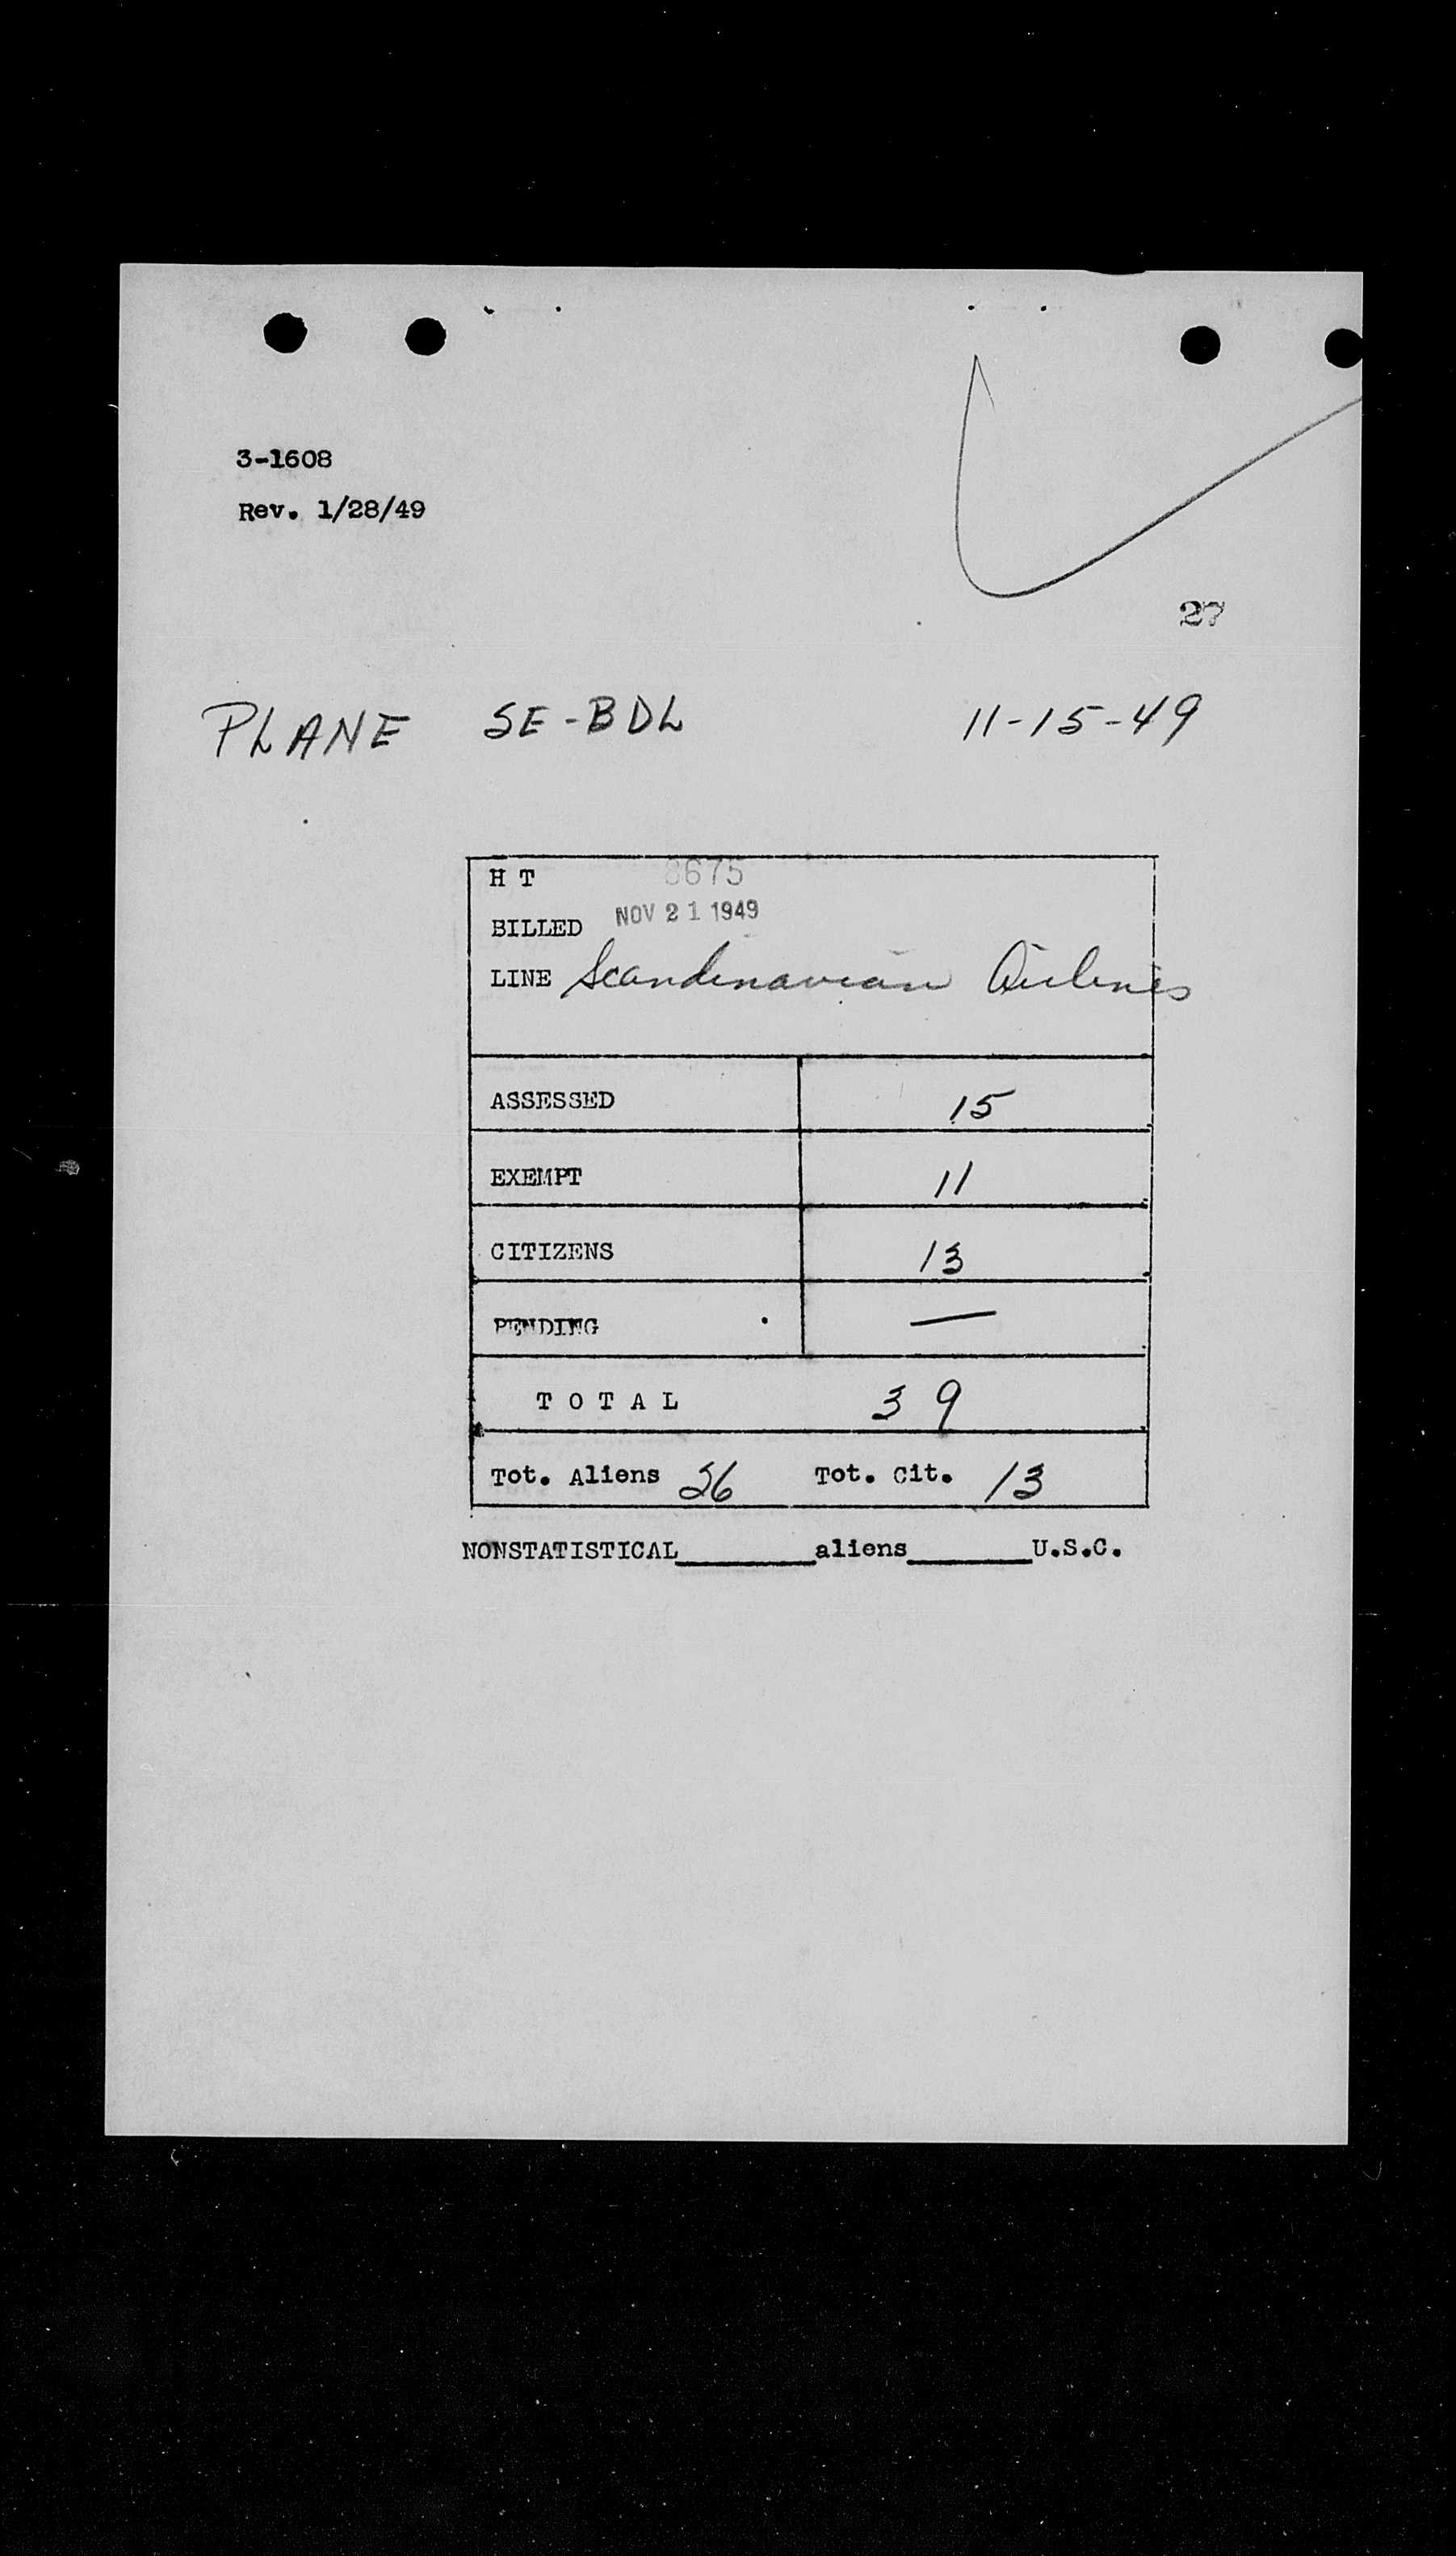 3-1608
Rev. 1/28/49
27
PLANE SE-BDL 11-15-49
H T
BILLED NOV 21 1949
LINE Scandinavian Airlines
ASSESSED 15
EXEMPT 11
CITIZENS 13
PENDING —
TOTAL 39
Tot. Aliens 26 Tot. Cit. 13
NONSTATISTICAL________aliens________U.S.C.